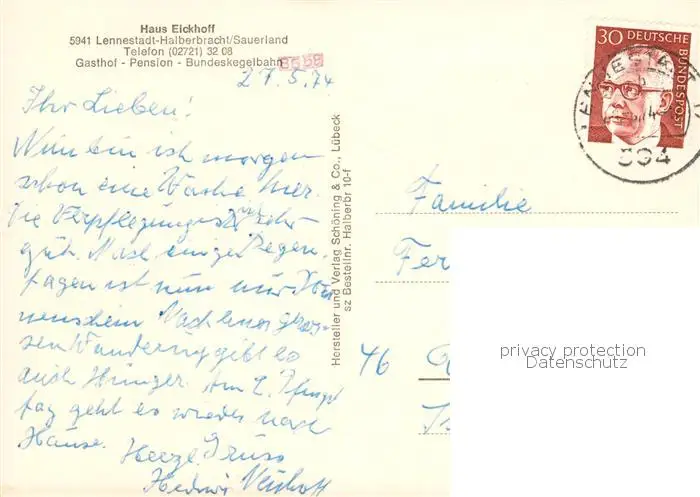 Haus Eickhoff
5941 Lennestadt-Halberbracht/Sauerland
Telefon (02721) 32 08
Gasthof - Pension - Bundeskegelbahn
27.5.74
Ihr Lieben!
Nun bin ich morgen
schon eine Woche hier.
Die Verpflegung ist sehr
gut. Nach einigen Regen,
tagen ist nun nur Son
nenschein. Nach einer gros-
sen Wanderung gibt es
auch Hunger. Am 2. Pfingst
tag geht es wieder nach
Hause. Herzl. Gruss
Hedwig
Hersteller und Verlag Schöning & Co., Lübeck
sz Bestellnr. Halberbr 10-f
30 DEUTSCHE
BUNDESPOST
Familie
Fer
46
privacy protection
Datenschutz